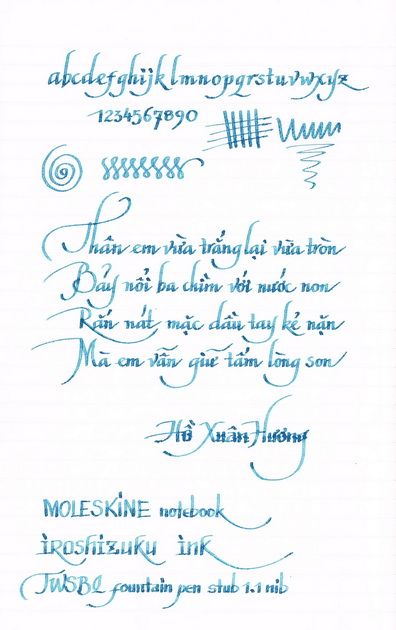 abcdefghijklmnopqrstuvwxyz
1234567890
Thân em vừa trắng lại vừa tròn
Bảy nổi ba chìm với nước non
Rắn nát mặc dầu tay kẻ nặn
Mà em vẫn giữ tấm lòng son
Hồ Xuân Hương
MOLESKINE notebook
iroshizuku ink
TWSBI fountain pen stub 1.1 nib